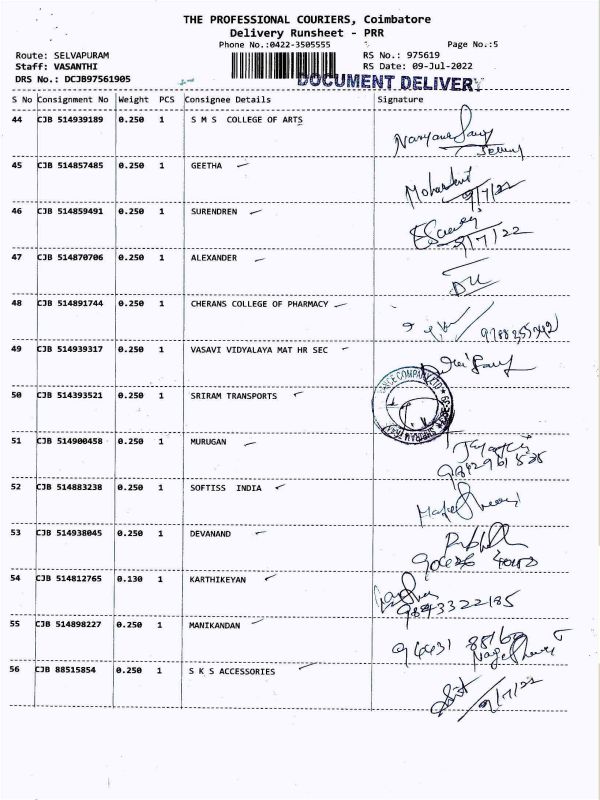 THE PROFESSIONAL COURIERS, Coimbatore
Delivery Runsheet - PRR
Phone No.:0422-3505555
Page No.:5
Route: SELVAPURAM
RS No.: 975619
Staff: VASANTHI
RS Date: 09-Jul-2022
DRS No.: DCJB97561905
DOCUMENT DELIVERY
S No Consignment No Weight PCS Consignee Details Signature
44 CJB 514939189 0.250 1 S M S COLLEGE OF ARTS
45 CJB 514857485 0.250 1 GEETHA
9/7/22
46 CJB 514859491 0.250 1 SURENDREN
9/7/22
47 CJB 514870706 0.250 1 ALEXANDER
48 CJB 514891744 0.250 1 CHERANS COLLEGE OF PHARMACY
49 CJB 514939317 0.250 1 VASAVI VIDYALAYA MAT HR SEC
50 CJB 514393521 0.250 1 SRIRAM TRANSPORTS
51 CJB 514900458 0.250 1 MURUGAN
52 CJB 514883238 0.250 1 SOFTISS INDIA
53 CJB 514938045 0.250 1 DEVANAND
54 CJB 514812765 0.130 1 KARTHIKEYAN
9843322185
55 CJB 514898227 0.250 1 MANIKANDAN
56 CJB 88515854 0.250 1 S K S ACCESSORIES
9/7/22